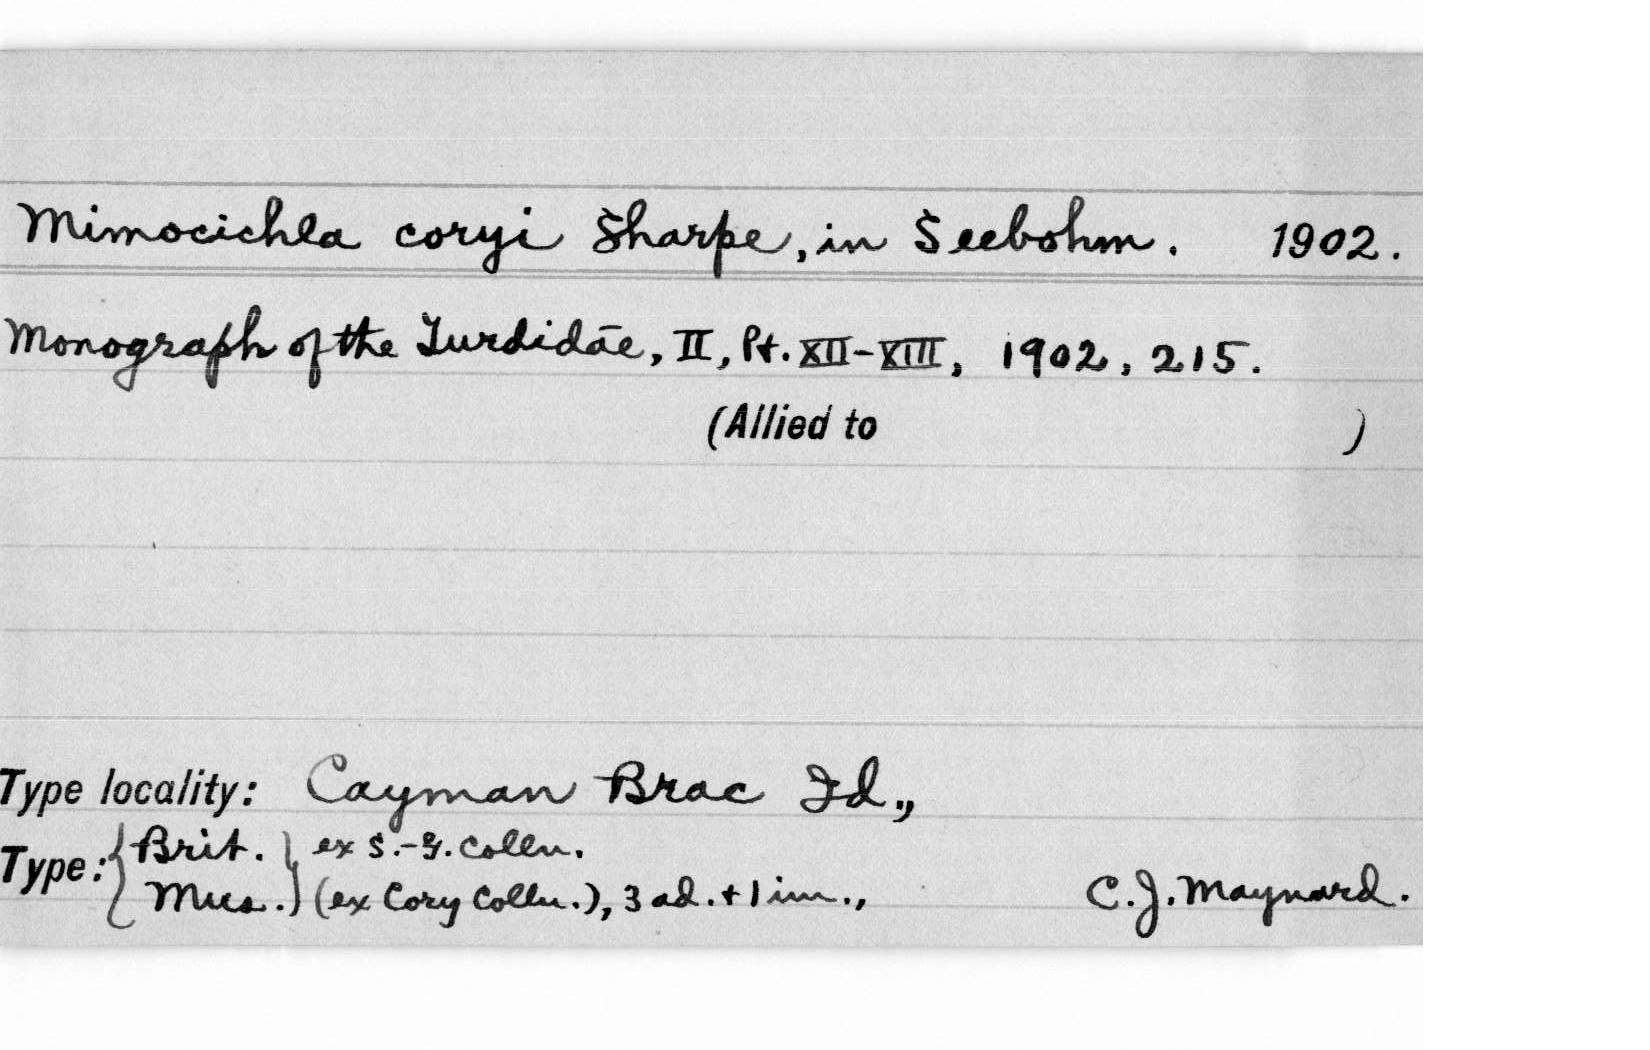 Mimocichla coryi Sharpe, in Seebohm. 1902.
Monograph of the Turdidae, II, Pt. XII-XIII, 1902, 215.
(Allied to )
Type locality: Cayman Brac Id.,
Type: { Brit. } ex S.-G. Colln.
Mus. (ex Cory Colln.), 3 ad. + 1 im., C.J. Maynard.